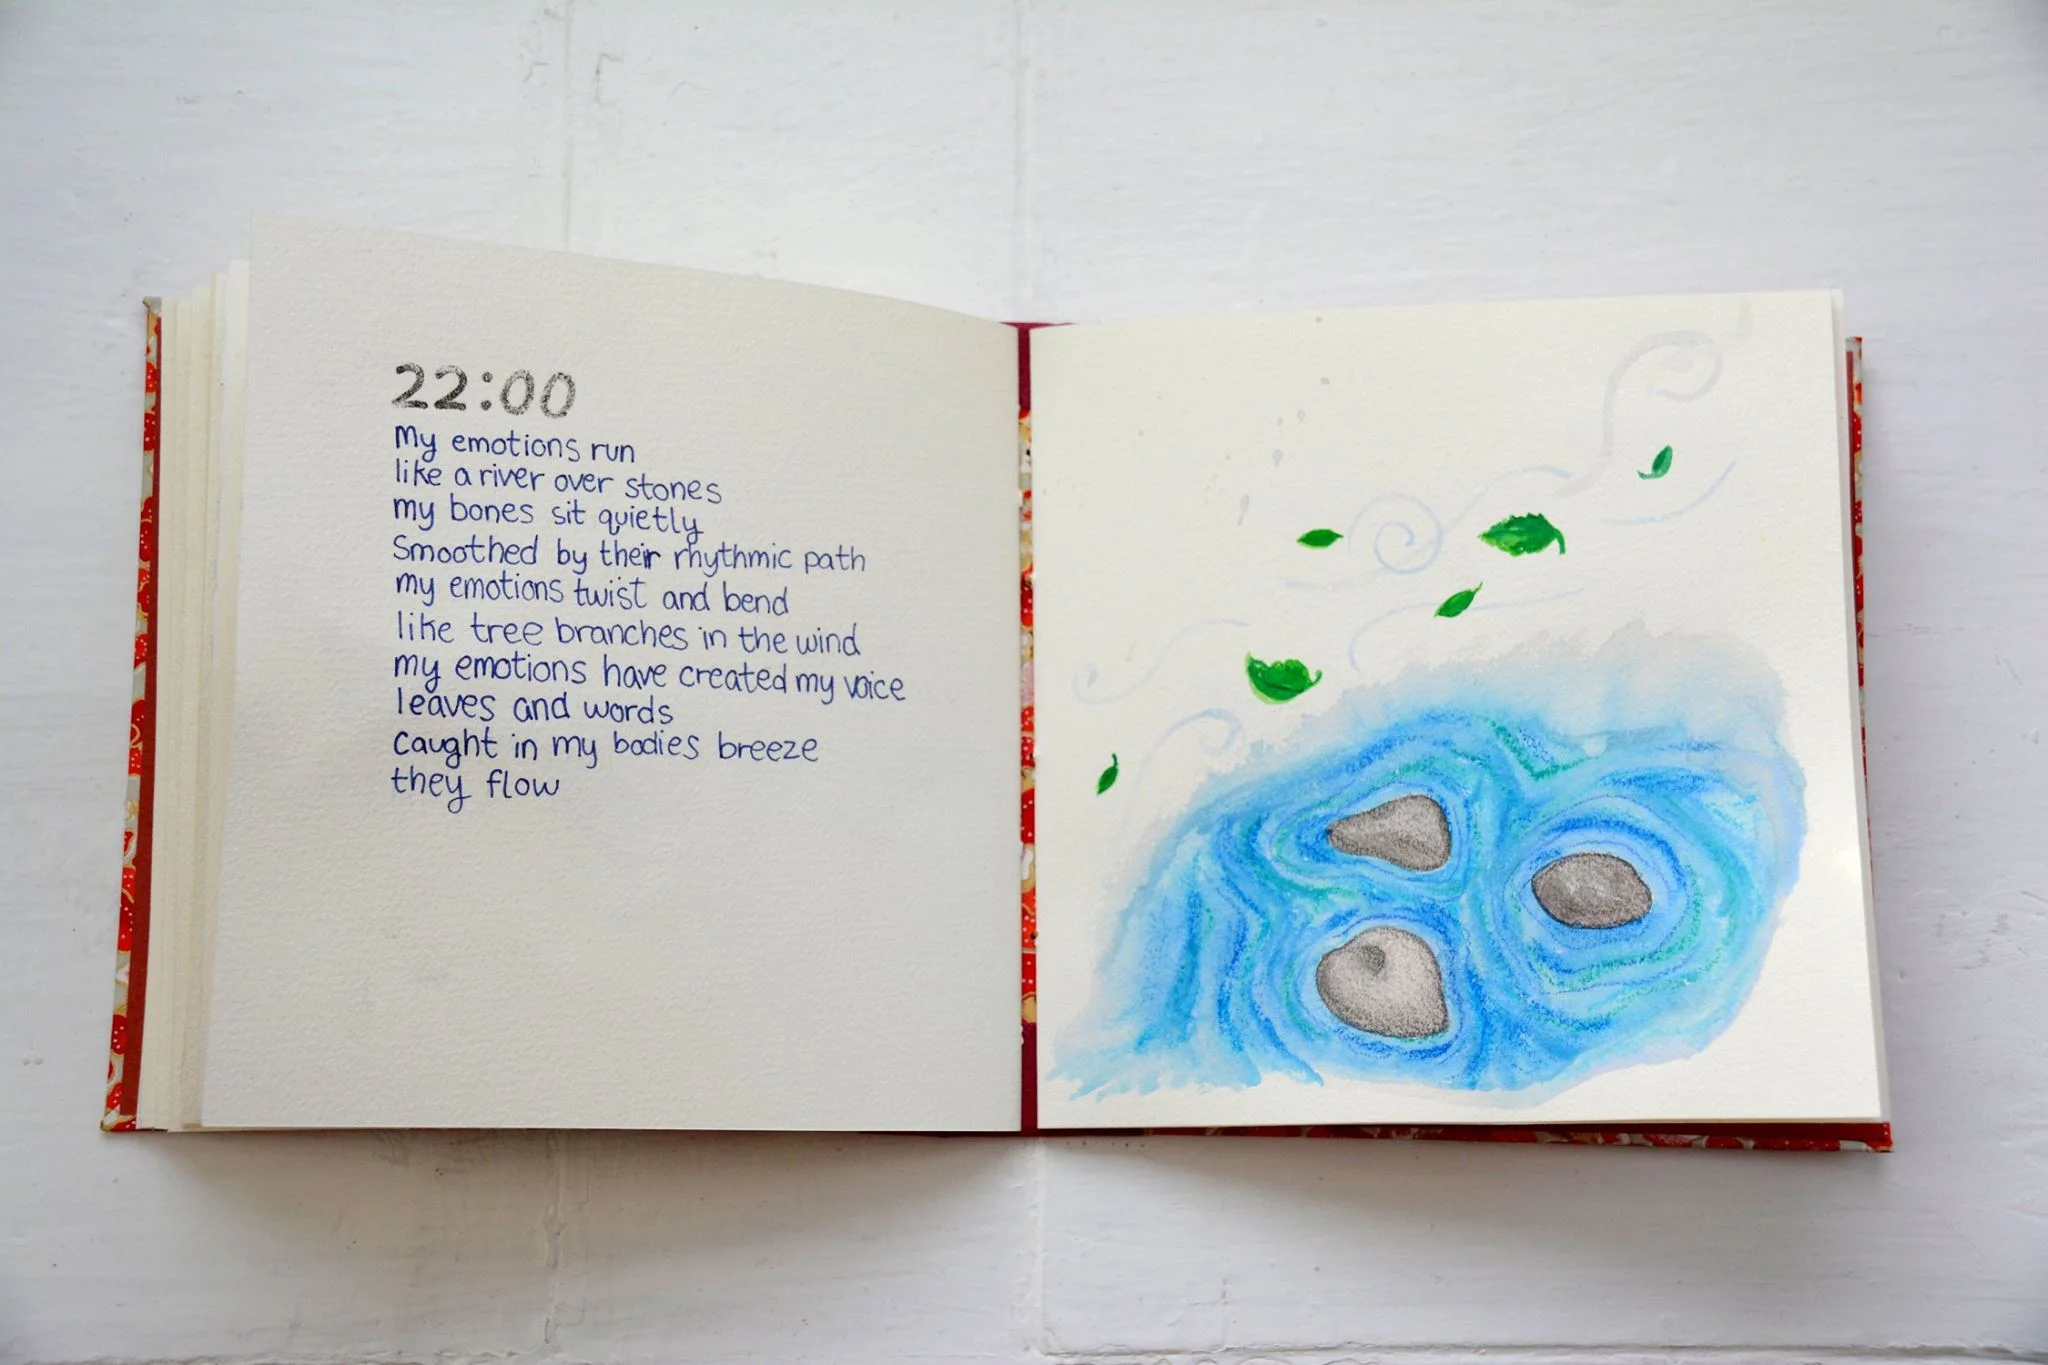 22:00
My emotions run
like a river over stones
my bones sit quietly
Smoothed by their rhythmic path
my emotions twist and bend
like tree branches in the wind
my emotions have created my voice
leaves and words
caught in my bodies breeze
they flow